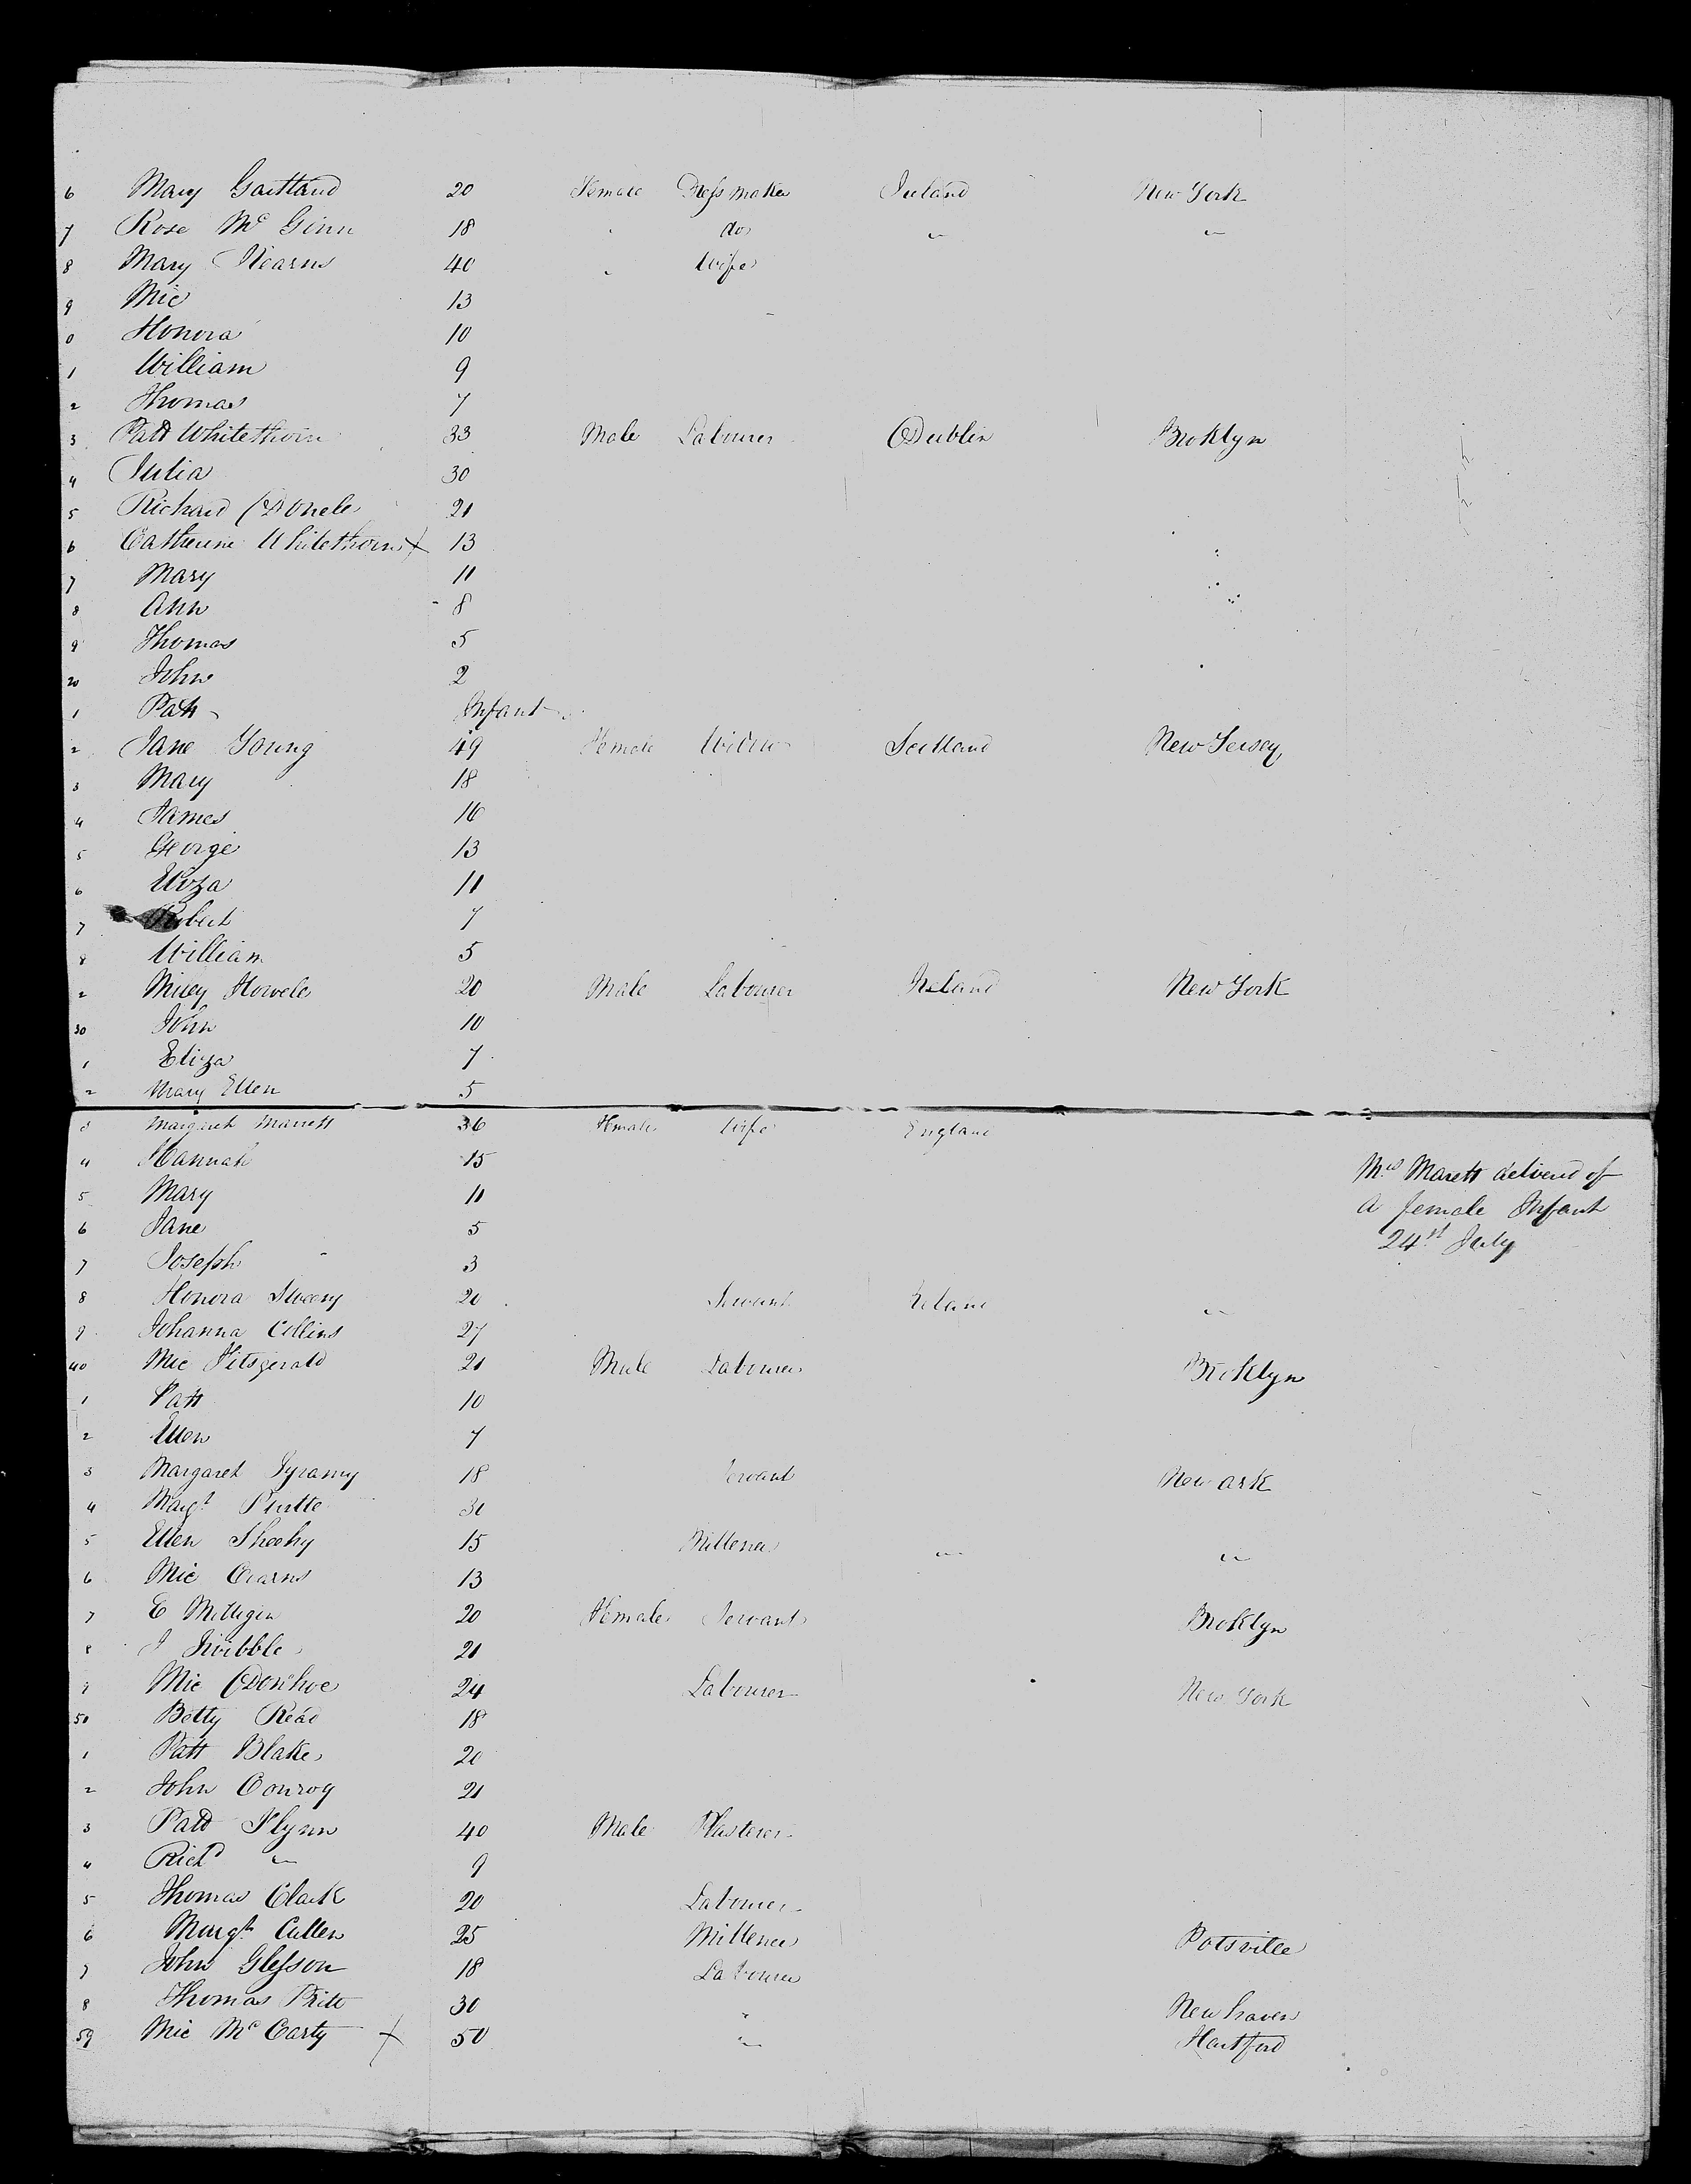 6 Mary Gartland 20 Female Dress maker Ireland New York
7 Rose Mc Ginn 18 " do " "
8 Mary Kearns 40 " Wife
9 Mic 13
0 Honora 10
1 William 9
2 Thomas 7
3 Patt Whitethorn 33 Male Labourer Dublin Broklyn
4 Julia 30
5 Richard 21
6 Catherine Whitethorn X 13
7 Mary 11
8 Ann 8
9 Thomas 5
20 John 2
1 Patt Infant
2 Jane Young 49 Female Widow Scotland New Jersey
3 Mary 18
4 James 16
5 George 13
6 Eliza 11
7 Robert 7
8 William 5
2 Howele 20 Male Labourer Ireland New York
30 John 10
1 Eliza 7
2 Mary Ellen 5
3 Margaret Marrett 36 Female Wife England
4 Hannah 15
Mrs Marett deliverd of
5 Mary 11
a female Infant
6 Jane 5
24st July
7 Joseph 3
8 Honora Sweeny 20 Servant Ireland "
9 Johanna Collins 27
40 Mic Fitsgerald 21 Male Labourer Broklyn
1 Patt 10
2 Ellen 7
3 Margaret 18 Servant New ark
4 Margt 30
5 Ellen Sheehy 15 Millener " "
6 Mic Cearns 13
7 E Milligin 20 Female Servant Broklyn
8 J 21
9 Mic ODonhoe 24 Labourer New York
50 Betty Read 18
1 Patt Blake 20
2 John Conroy 21
3 Patt Flynn 40 Male Plasterer
4 Richd " 9
5 Thomas Clark 20 Labourer
6 Margt Cullen 25 Millener Potsville
7 John Glesson 18 Labourer
8 Thomas 30 " New haven
59 Mic Mc Carty X 50 " Hartford